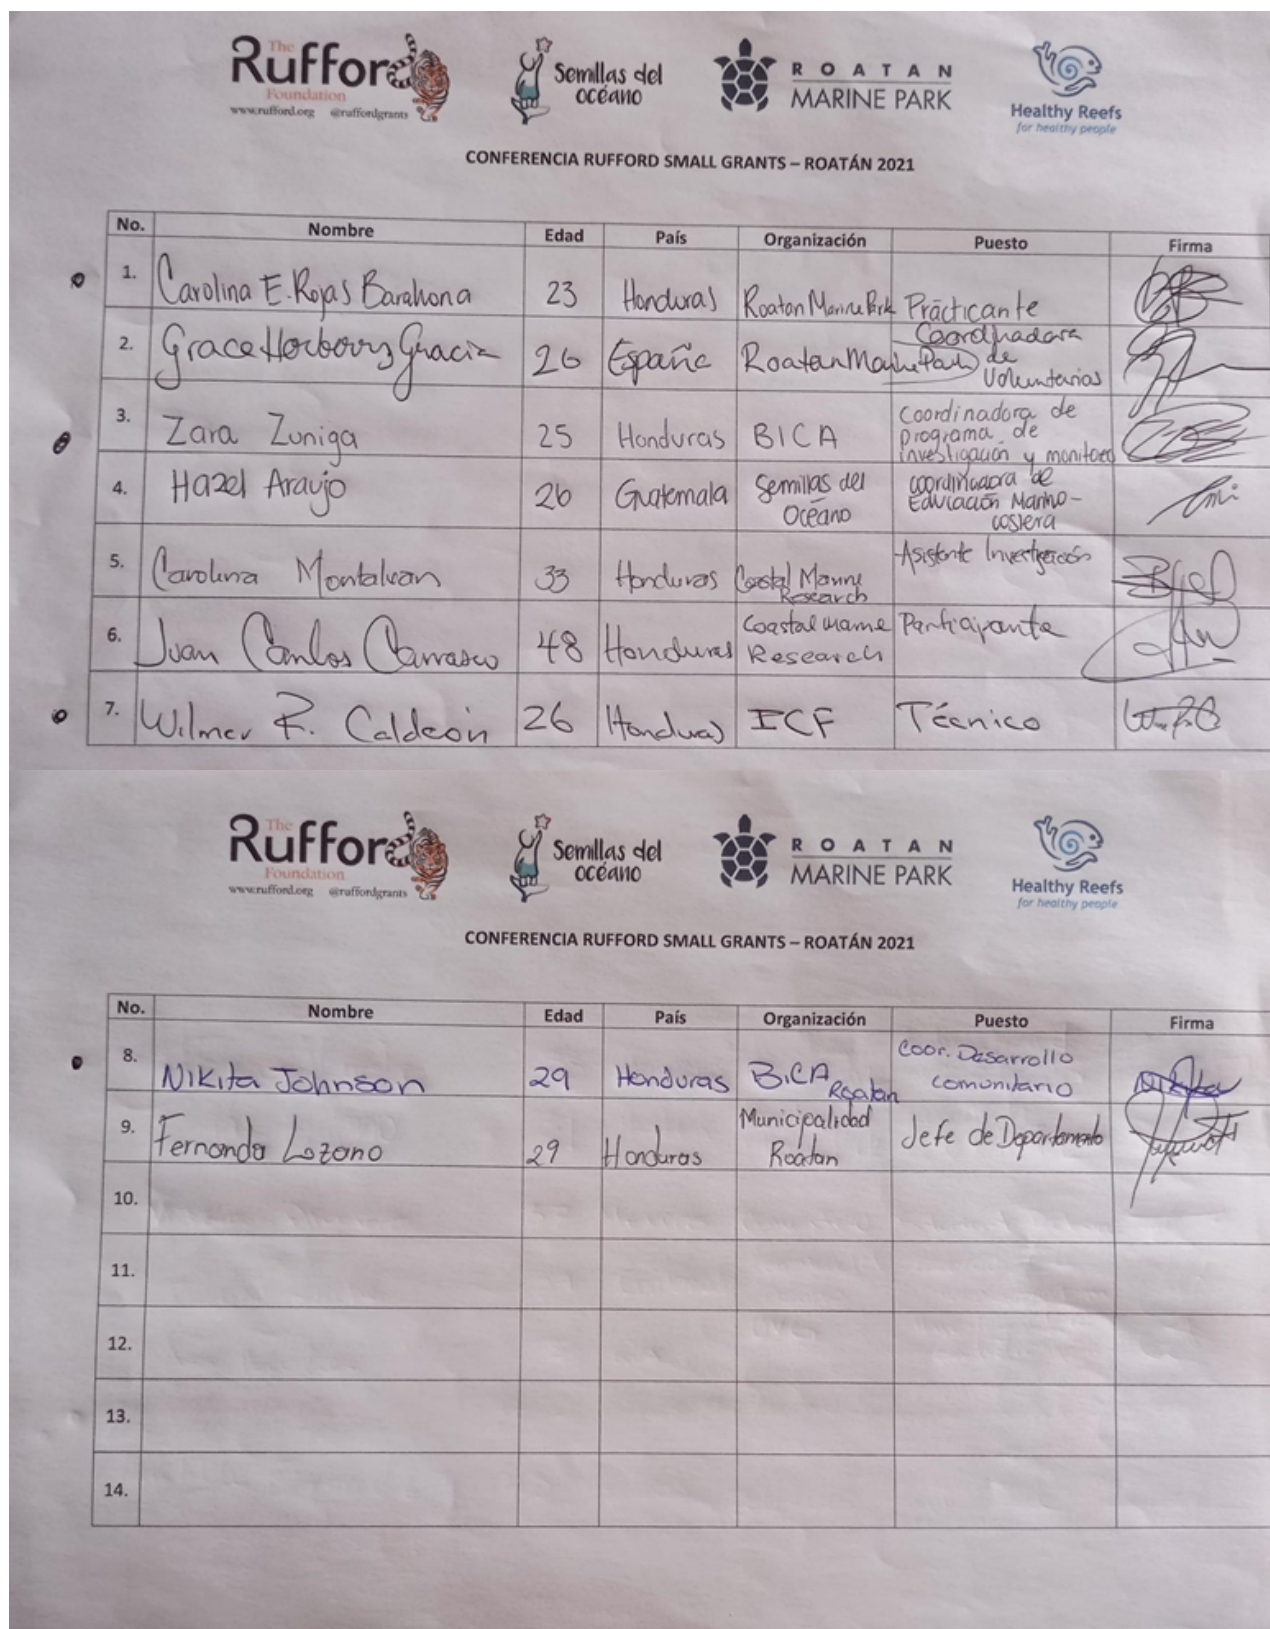 The
Rufford
Foundation
www.rufford.org @ruffordgrants
Semillas del
océano
ROATAN
MARINE PARK
Healthy Reefs
for healthy people
CONFERENCIA RUFFORD SMALL GRANTS – ROATÁN 2021
No. Nombre Edad País Organización Puesto Firma
1. Carolina E. Rojas Barahona 23 Honduras Roatan Marine Park Prácticante
2. Grace Gracia 26 España Roatan Marine Park Coordinadora
de
Voluntarios
3. Zara Zuniga 25 Honduras BICA Coordinadora de
programa de
investigación y monitoreo
4. Hazel Araujo 26 Guatemala Semillas del
Océano
coordinadora de
Educación Marino-
costera
5. Carolina Montalvan 33 Honduras Coastal Marine
Research
Asistente Investigación
6. Juan Carlos Carrasco 48 Honduras Coastal marine
Research
Participante
7. Wilmer R. Calderón 26 Honduras ICF Técnico
The
Rufford
Foundation
www.rufford.org @ruffordgrants
Semillas del
océano
ROATAN
MARINE PARK
Healthy Reefs
for healthy people
CONFERENCIA RUFFORD SMALL GRANTS – ROATÁN 2021
No. Nombre Edad País Organización Puesto Firma
8. Nikita Johnson 29 Honduras BICA
Roatan
Coor. Desarrollo
comunitario
9. Fernando Lozano 29 Honduras Municipalidad
Roatan
Jefe de Departamento
10.
11.
12.
13.
14.